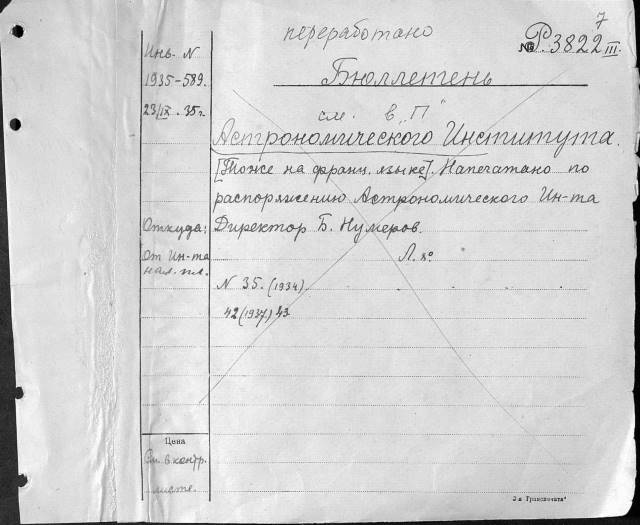 переработано
7
№ Р.3822 III.
Инв. N
1935-589.
23/IX.35г.
Бюллетень
см. в „П"
Астрономического Института.
[Тоже на франц. языке]. Напечатано по
распоряжению Астрономического Ин-та
Откуда:
Директор Б. Нумеров.
От Ин-та
нал. пл.
Л. 8°
N 35. (1934).
42 (1937) 43
Цена
См. в контр.
листе.
3-я Гранпечать"